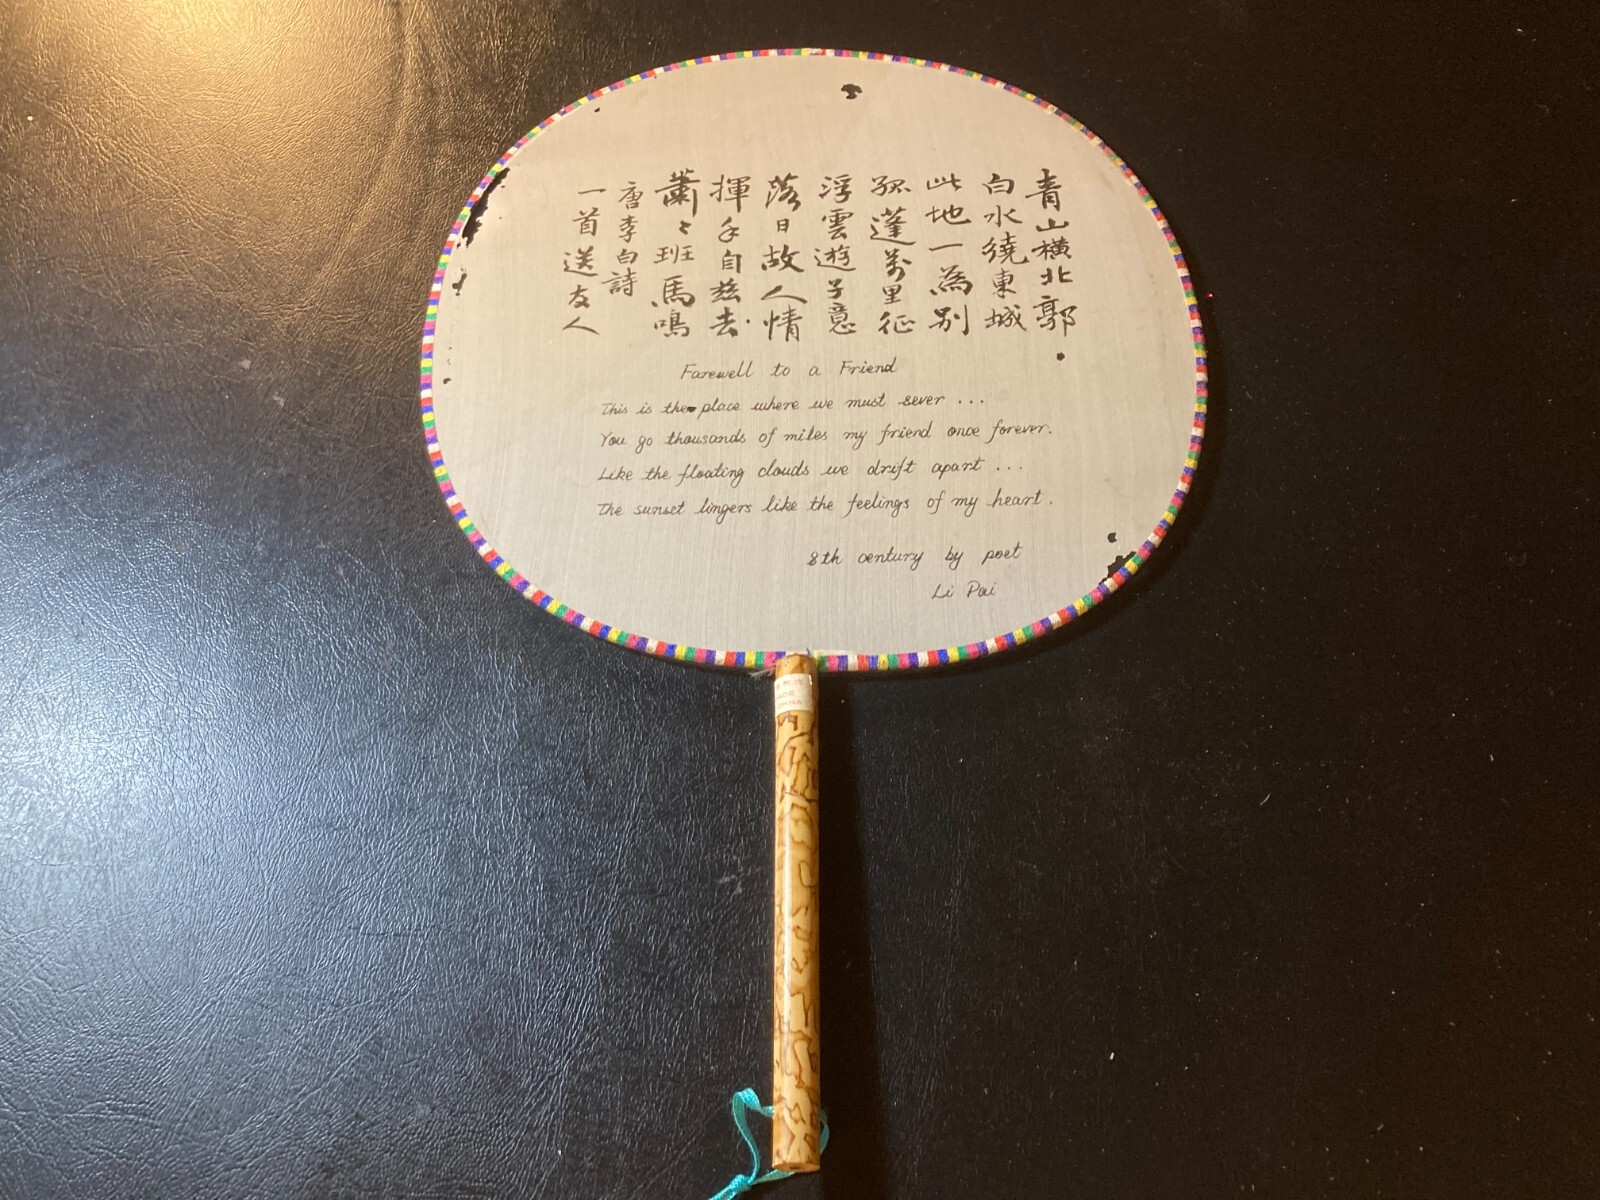 青山橫北郭
白水繞東城
此地一為別
孤蓬萬里征
浮雲遊子意
落日故人情
揮手自茲去
蕭〻班馬鳴
唐李白詩
一首送友人
Farewell to a Friend
This is the place where we must sever ...
You go thousands of miles my friend once forever.
Like the floating clouds we drift apart ...
The sunset lingers like the feelings of my heart.
8th century by poet
Li Pai